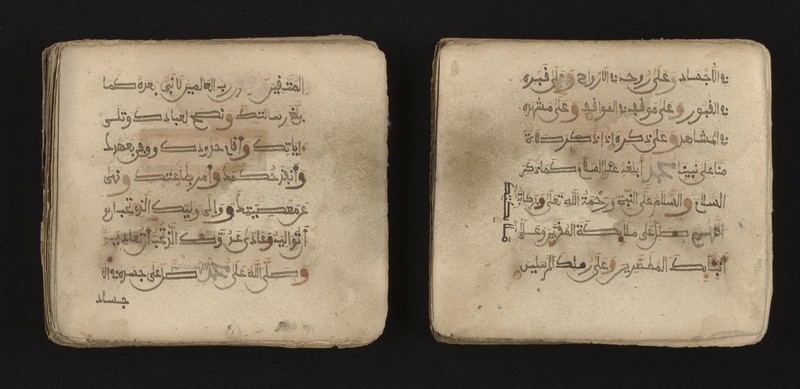 المتقين رب العالمين لا نبي بعده كما
بلغ رسالتك ونصح لعبادك وتلى
ءاياتك وأقام حدودك ووفى بعهدك
وأنفذ حكمك وأمر بطاعتك ونهى
عن معصيتك ووالى وليك الذي تحب أن
تواليه وعادى عدوك الذي تحب أن تعاديه
وصلى الله على محمد صل على جسده في الا
جساد
في الأجساد وعلى روحه في الأرواح وعلى قبره
في القبور وعلى موقفه في المواقف وعلى مشهده
في المشاهد وعلى ذكره إذا ذكر صلاة
منا على نبينا محمد أبلغه عنا السلام كما ذكر
السلام والسلام على النبي ورحمة الله تعلى وبركاته
اللهم صل على ملائكتك المقربين وعلى
أنبيائك المطهرين وعلى رسلك المرسلين